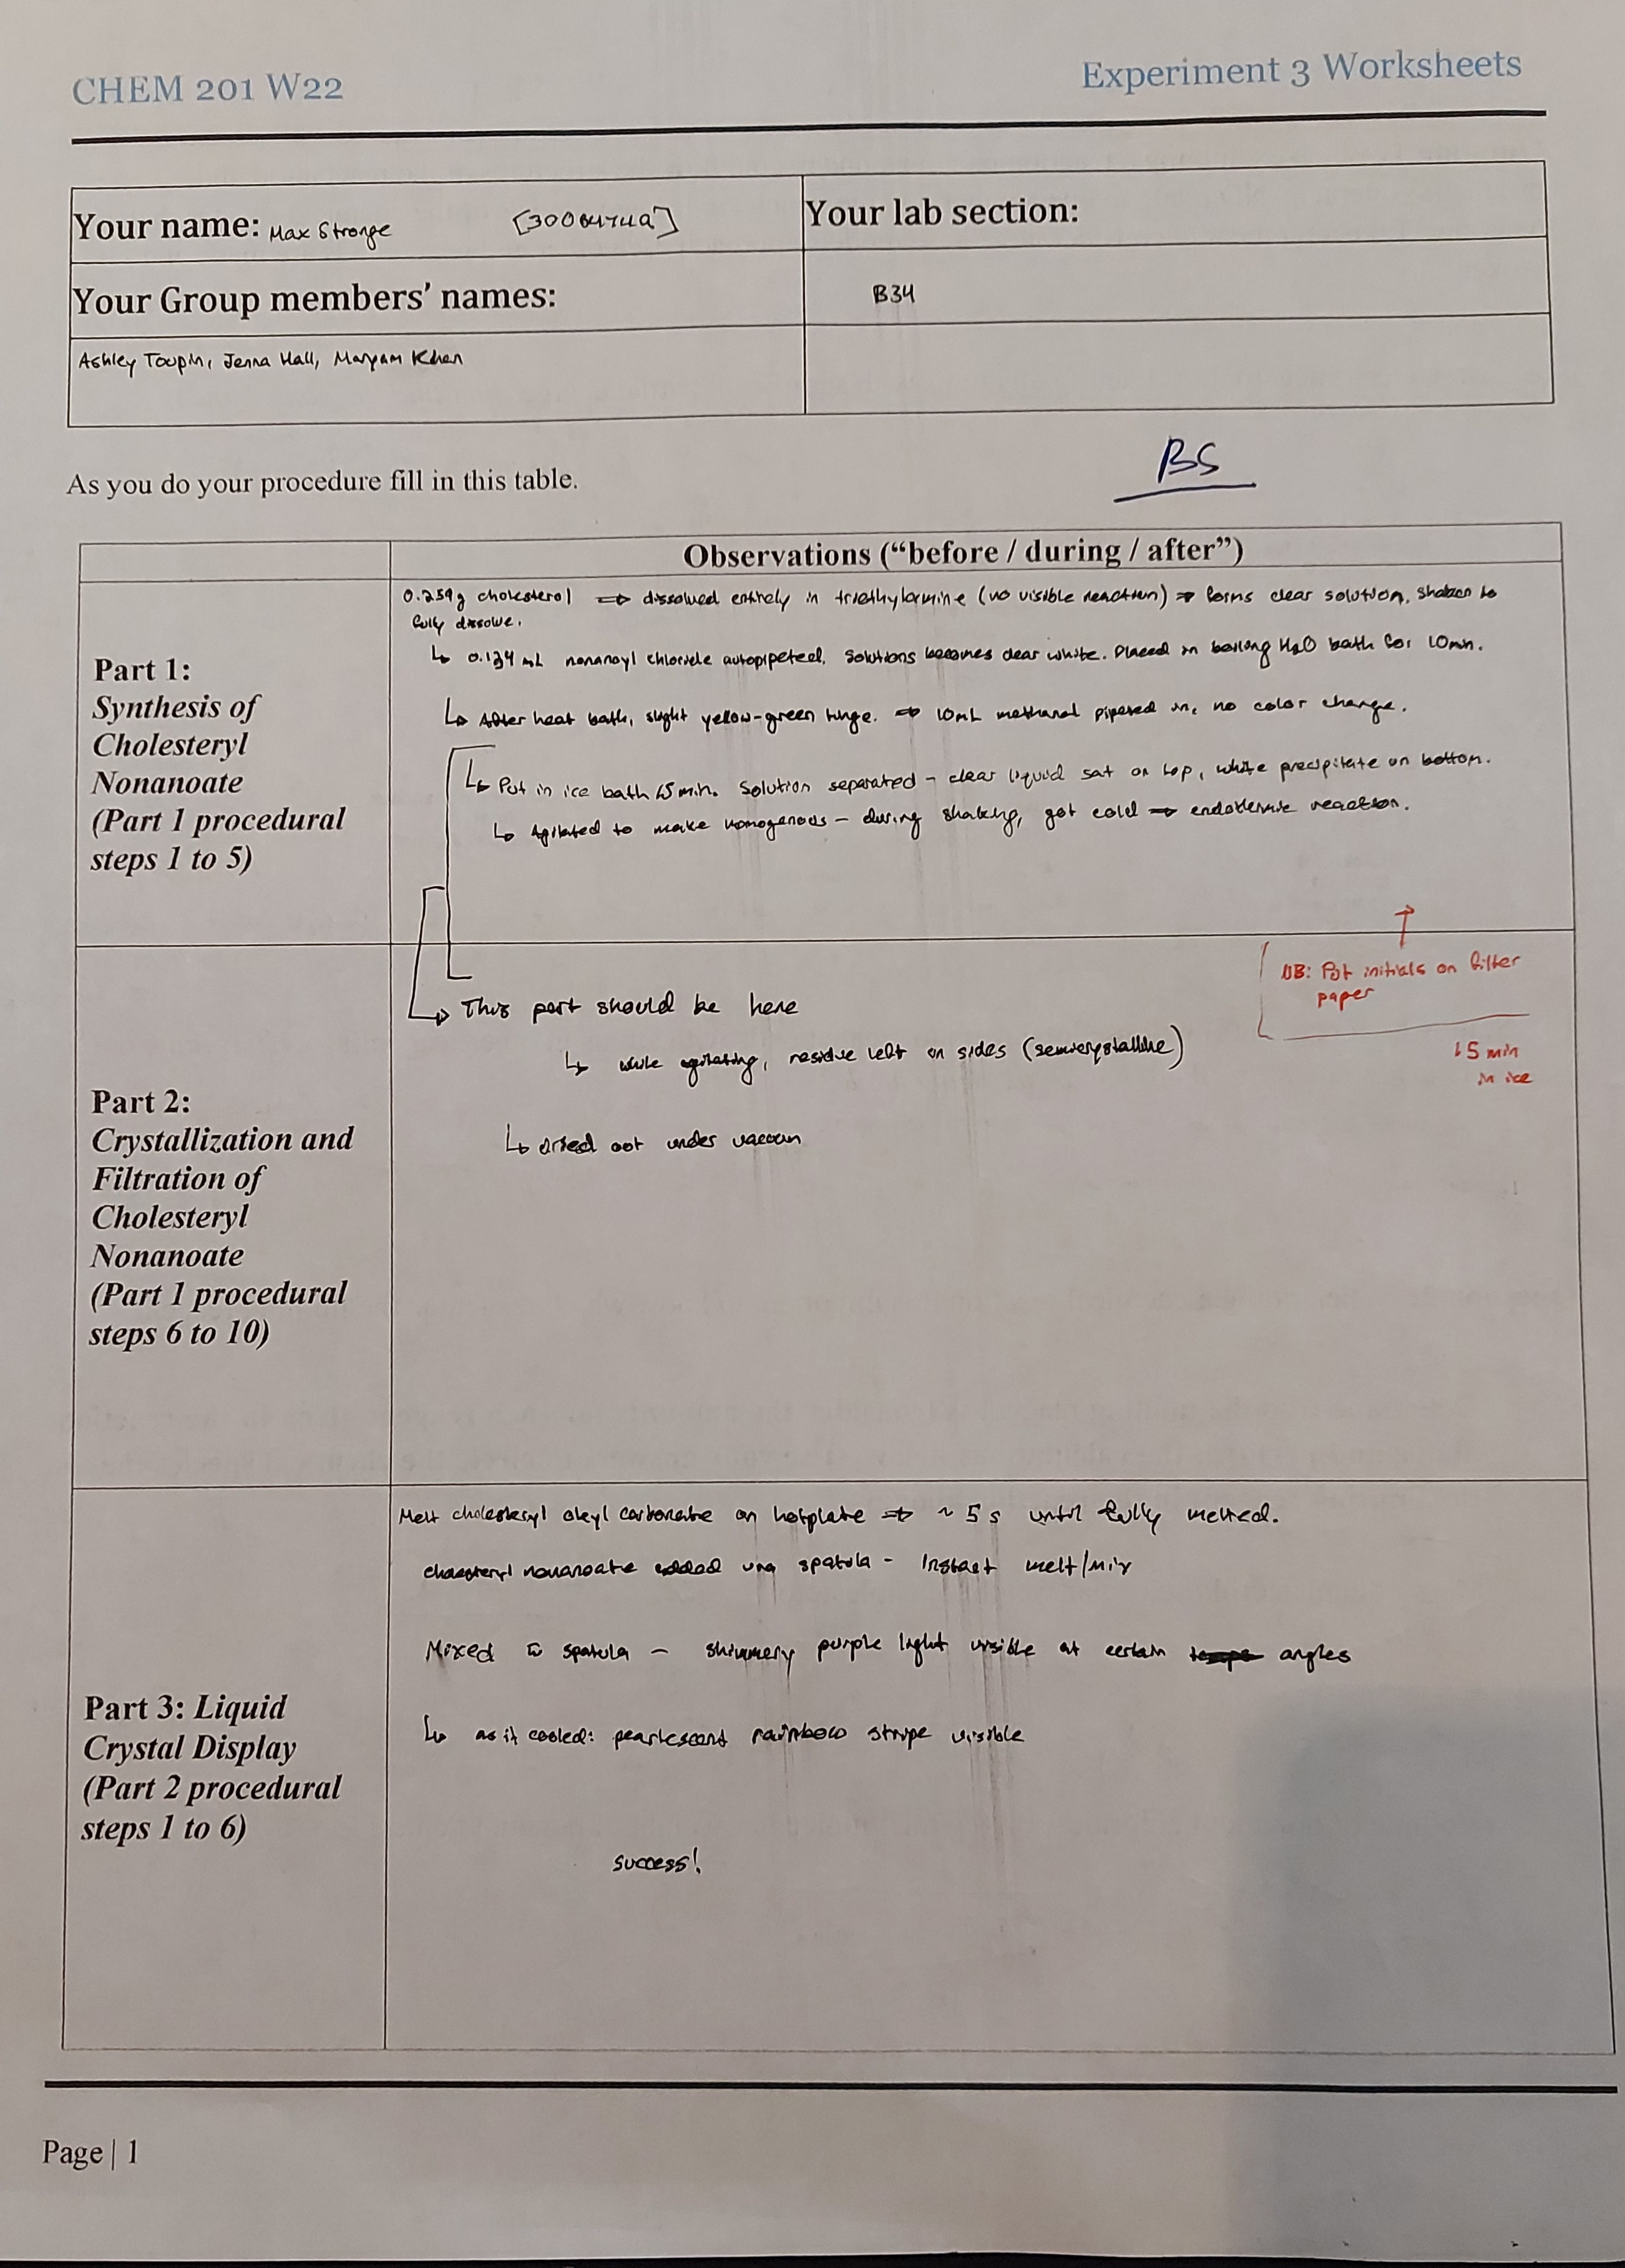 CHEM 201 W22
Experiment 3 Worksheets
Your name: Max Stronge
Your lab section:
Your Group members' names:
B34
Ashley Toupin, Jenna Hall, Maryam Khan
BS
As you do your procedure fill in this table.
Observations ("before / during / after")
Part 1:
Synthesis of
Cholesteryl
Nonanoate
(Part 1 procedural
steps 1 to 5)
0.259g cholesterol ⇒ dissolved entirely in triethylamine (no visible reaction) ⇒ forms clear solution, shaken to
fully dissolve.
↳ 0.134 mL nonanoyl chloride autopipeted, solutions becomes clear white. Placed in boiling H2O bath for 10min.
↳ After heat bath, slight yellow-green tinge. ⇒ 10mL methanol pipeted in, no color change.
↳ Put in ice bath 15 min. Solution separated - clear liquid sat on top, white precipitate on bottom.
↳ Agitated to make homogenous - during shaking, got cold ⇒ endothermic reaction.
Part 2:
Crystallization and
Filtration of
Cholesteryl
Nonanoate
(Part 1 procedural
steps 6 to 10)
NB: Put initials on filter
paper
15 min
in ice
This part should be here
↳ while agitating, residue left on sides (semicrystalline)
↳ dried out under vacuum
Part 3: Liquid
Crystal Display
(Part 2 procedural
steps 1 to 6)
Melt cholesteryl oleyl carbonate on hotplate ⇒ ~ 5 s until fully melted.
cholesteryl nonanoate added via spatula - Instant melt/mix
Mixed w spatula - shimmery purple light visible at certain temps angles
↳ as it cooled: pearlescent rainbow stripe visible
success!
Page | 1